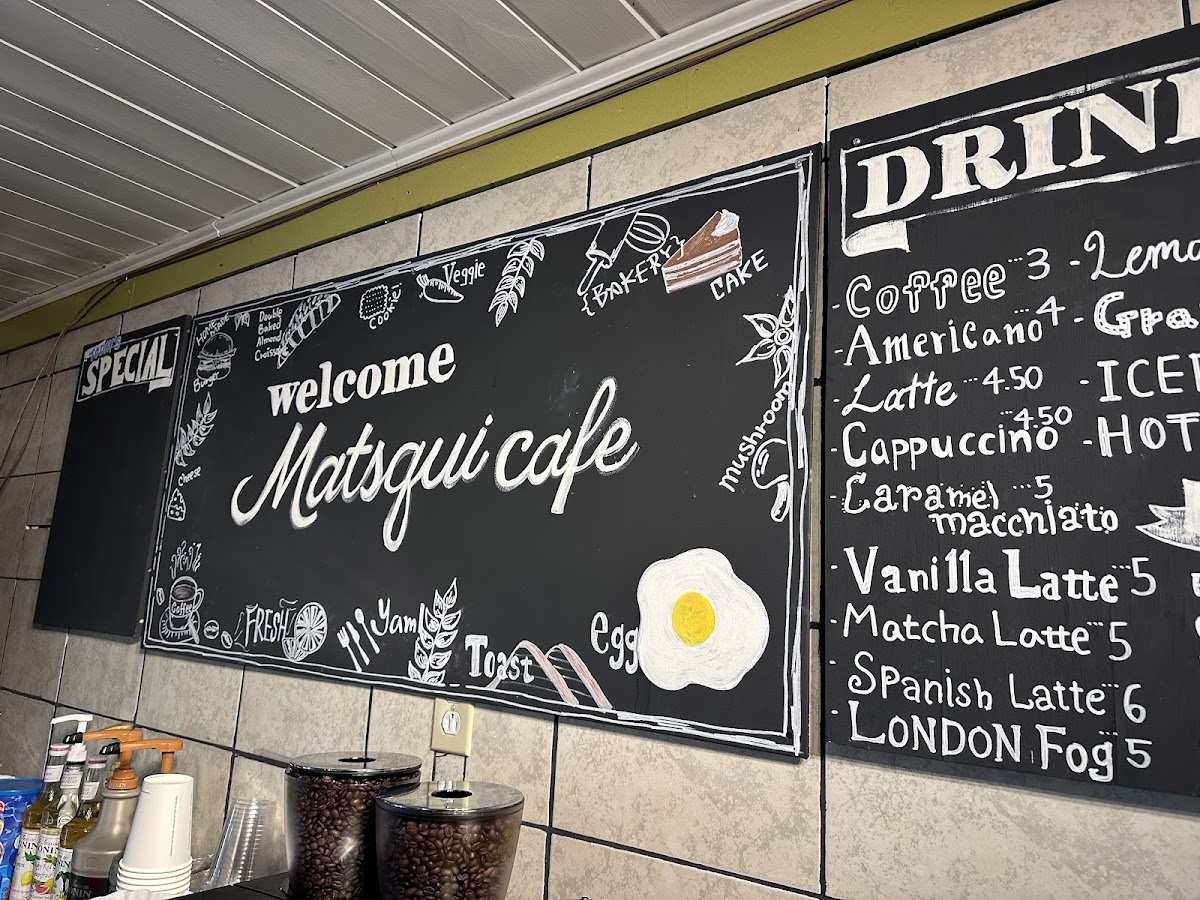 TODAY'S
SPECIAL
HOMEMADE
Burger
Double
Baked
Almond
Croissa
COOKie
Veggie
BAKERY
CAKE
welcome
Matsqui cafe
cheese
mushroom
Coffee
FRESH
Yam
Toast
egg
DRIN
- Coffee ... 3
- Americano ... 4
- Latte ... 4.50
- Cappuccino ... 4.50
- Caramel ... 5
macchiato
- Vanilla Latte ... 5
- Matcha Latte ... 5
- Spanish Latte ... 6
- LONDON Fog ... 5
- Lemo
- Gra
- ICE
- HOT
NIN
NIN
NIN
NIN